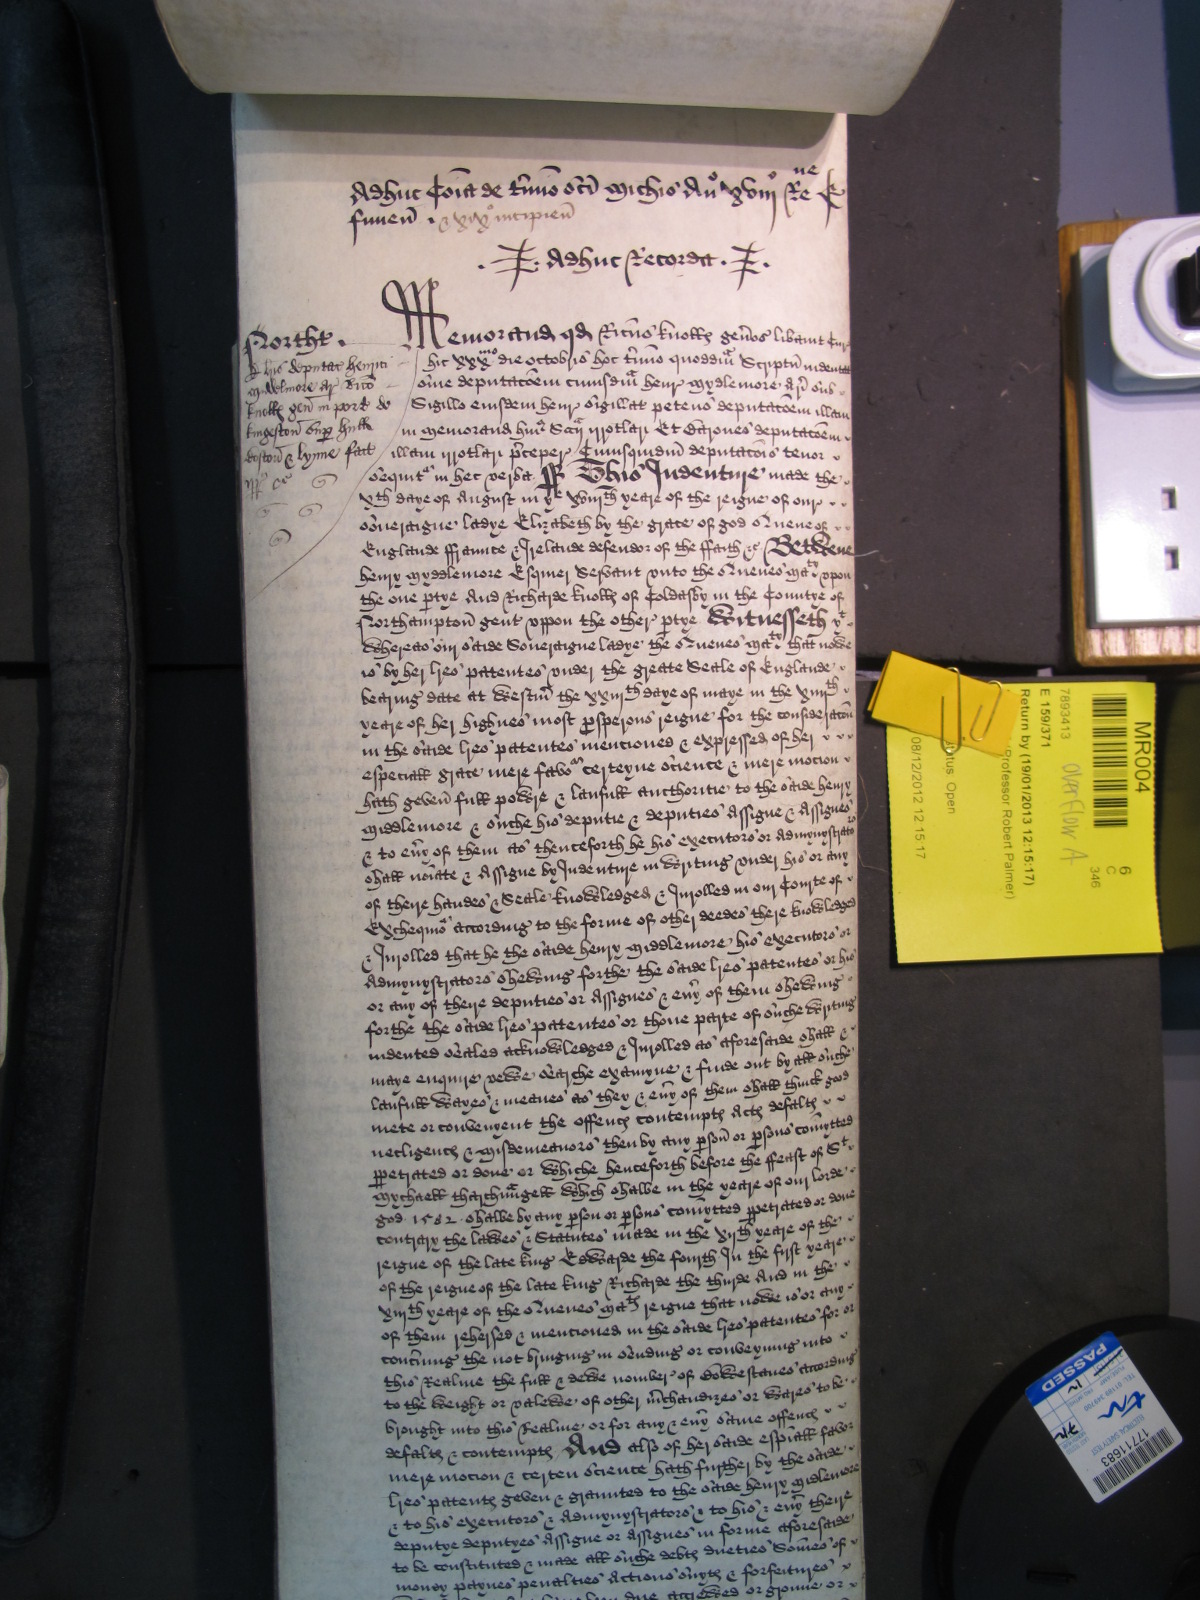 Adhuc Coia de tmio sci Michis Ano xviij Re Rne E
finien . & xix incipien
Adhuc Recorda
Northt.
Memorand qd Ricus Knolls genos libavit Cur
hic xxxmo die octobris hoc tmio quoddm Scriptu indentat
sive deputacoem cuiusdm henr Mydlemore Ar sub
Sigillo eiusdem henr sigillat petens deputacoem illam
in memorand huis Sccij irrotlari Et Barones deputacoem
illam irrotlari preceper Cuiusquidm deputacois tenor
sequit in hec verba. This Indenture made the
xth daye of August in ye xviijth yeare of the reigne of our
soveraigne ladye Elizabeth by the grace of god Quene of
Englande ffraunce & Irelande defendor of the ffaith &c Betwene
henry Myddlemore Esquier Servant unto the Quenes Maty upon
the one ptye And Richarde Knolls of Coldasby in the Countye of
Northampton gent uppon the other ptye Witnesseth yt
whereas our saide Soveraigne ladye the Quenes Maty that nowe
is by her lres patentes under the greate Seale of Englande
bearing date at Westm the xxiijth daye of Maye in the xviijth
yeare of her highnes most psperous reigne for the consideracon
in the saide lres patentes mentioned & expressed of her
especiall grace mere favor certeyne science & mere motion
hath geven full power & laufull authoritie to the saide henry
Middlemore & suche his deputie & deputies Assigne & Assignes
& to evy of them as thenceforth he his executors or Admynystrators
shall noiate & Assigne by Indenture in writing under his or any
of theire handes & Seale knowledged & Inrolled in our Courte of
Exchequior according to the forme of other deedes there knowledged
& Inrolled that he the saide henry Middlemore his executors or
Admynystrators shewing forthe the saide lres patentes or his
or any of there deputies or Assignes & evy of them shewing
forthe the saide lres patentes or thone parte of suche writing
indented sealed acknowledged & Inrolled as aforesaide shall &
maye enquire vewe searche examyne & finde out by all suche
laufull wayes & meanes as they & evy of them shall think good
mete or convenyent the offences contempts Acts defalts
necligences & misdemeanors then by any pson or psons comytted
ppetrated or done or whiche henceforth before the ffeast of St
Mychaell tharchangell which shalbe in the yeare of our lorde
god 1582 shalbe by any pson or psons comytted ppetrated or done
contrary the lawes & Statutes made in the xijth yeare of the
reigne of the late king Edwarde the fourth In the first yeare
of the reigne of the late king Richarde the thirde And in the
xiijth yeare of the Quenes Mats reigne that nowe is or any
of them rehersed & mentioned in the saide lres patentes for or
concerning the not bringing in sending or conveyning into
this Realme the full & dewe nomber of bowestaves according
to the weight or valewe of other mchandizes or wares to be
brought into this Realme or for any & evy same offence
defalts & contempts And also of her saide espiall favor
mere motion & certen science hath further by the saide
lres patents geven & graunted to the saide henry Midlemore
& to his executors & Admynystrators & to his & evy theire
deputye deputyes Assigne or Assignes in forme aforesaide
to be constituted & made all suche debts dueties Somes of
money paynes penalties Actions suyts & forfeitures
MR004
7893413
E 159/371
Return by (19/01/2013 12:15:17)
Professor Robert Palmer)
Status Open
08/12/2012 12 15 17
overflow A
6
C
346
PASSED
17711683